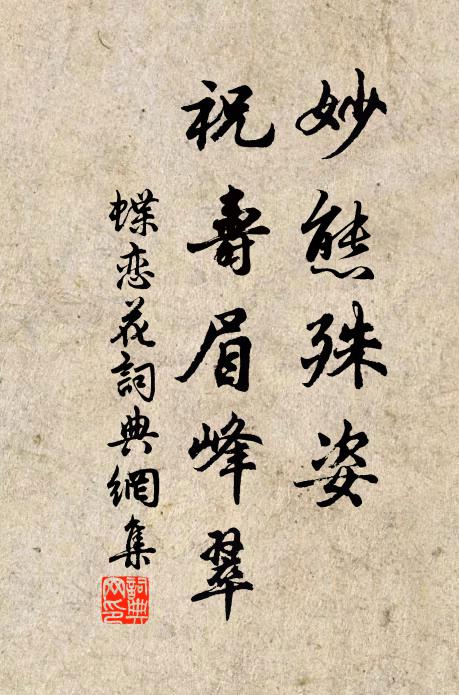 妙態殊姿
祝壽眉峰翠
蝶恋花詞典網集
詞典網印